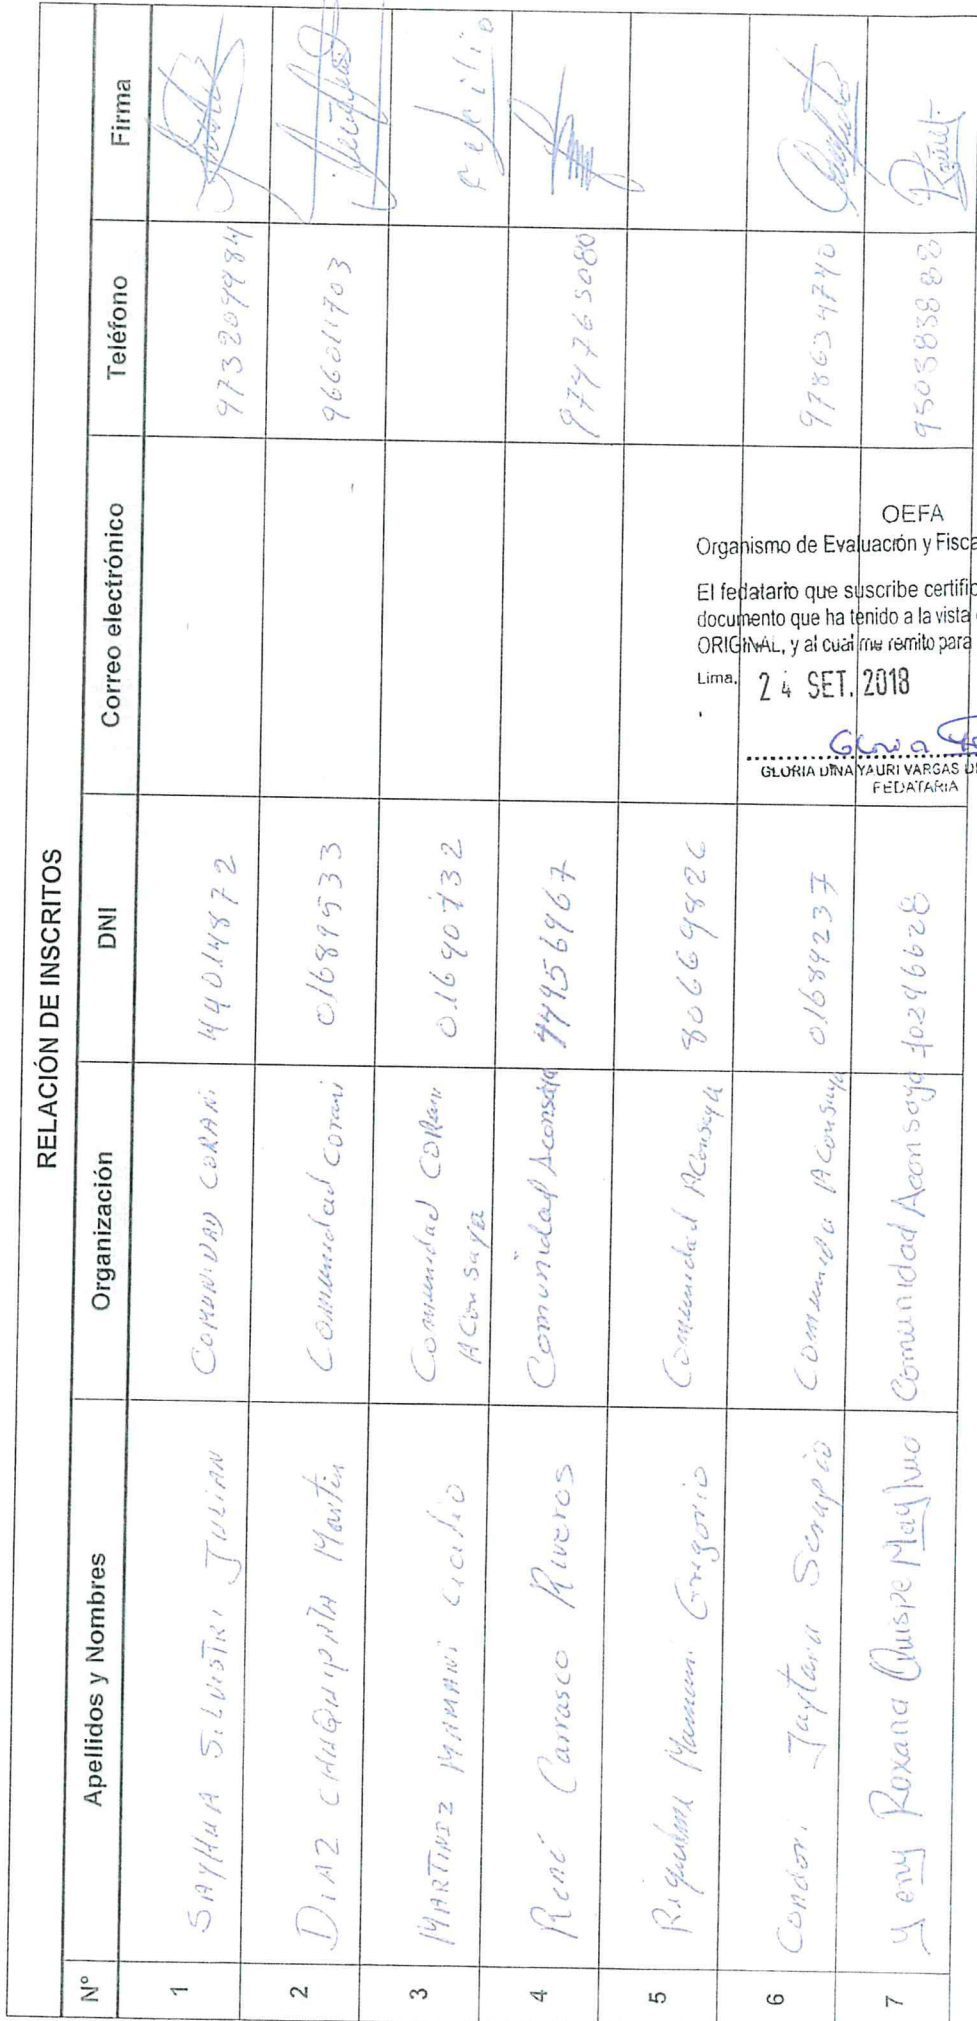 RELACIÓN DE INSCRITOS
N° Apellidos y Nombres Organización DNI Correo electrónico Teléfono Firma
1 SAYHUA SILVISTRI JULIAN COMUNIDAD CORANI 44014872 973209484
2 DIAZ CHUQUIPATA Martin Comunidad Corani 01689533 966011703
3 MARTINIZ MAMANI Cicilio Comunidad CORani
Aconsaya 01690732
4 René Carrasco Riveros Comunidad Aconsaya 44956967 974765080
5 Riquelme Mamani Gregorio Comunidad Aconsaya 80669826
6 Condori Jaytara Serapio Comunida Aconsaya 01689237 978634740
7 Yeny Roxana Quispe Mayhuo Comunidad Aconsaya 70296628 950383888
OEFA
Organismo de Evaluación y Fisca
El fedatario que suscribe certific
documento que ha tenido a la vista
ORIGINAL, y al cual me remito para
Lima, 24 SET. 2018
Gloria
GLORIA DINA YAURI VARGAS DE
FEDATARIA